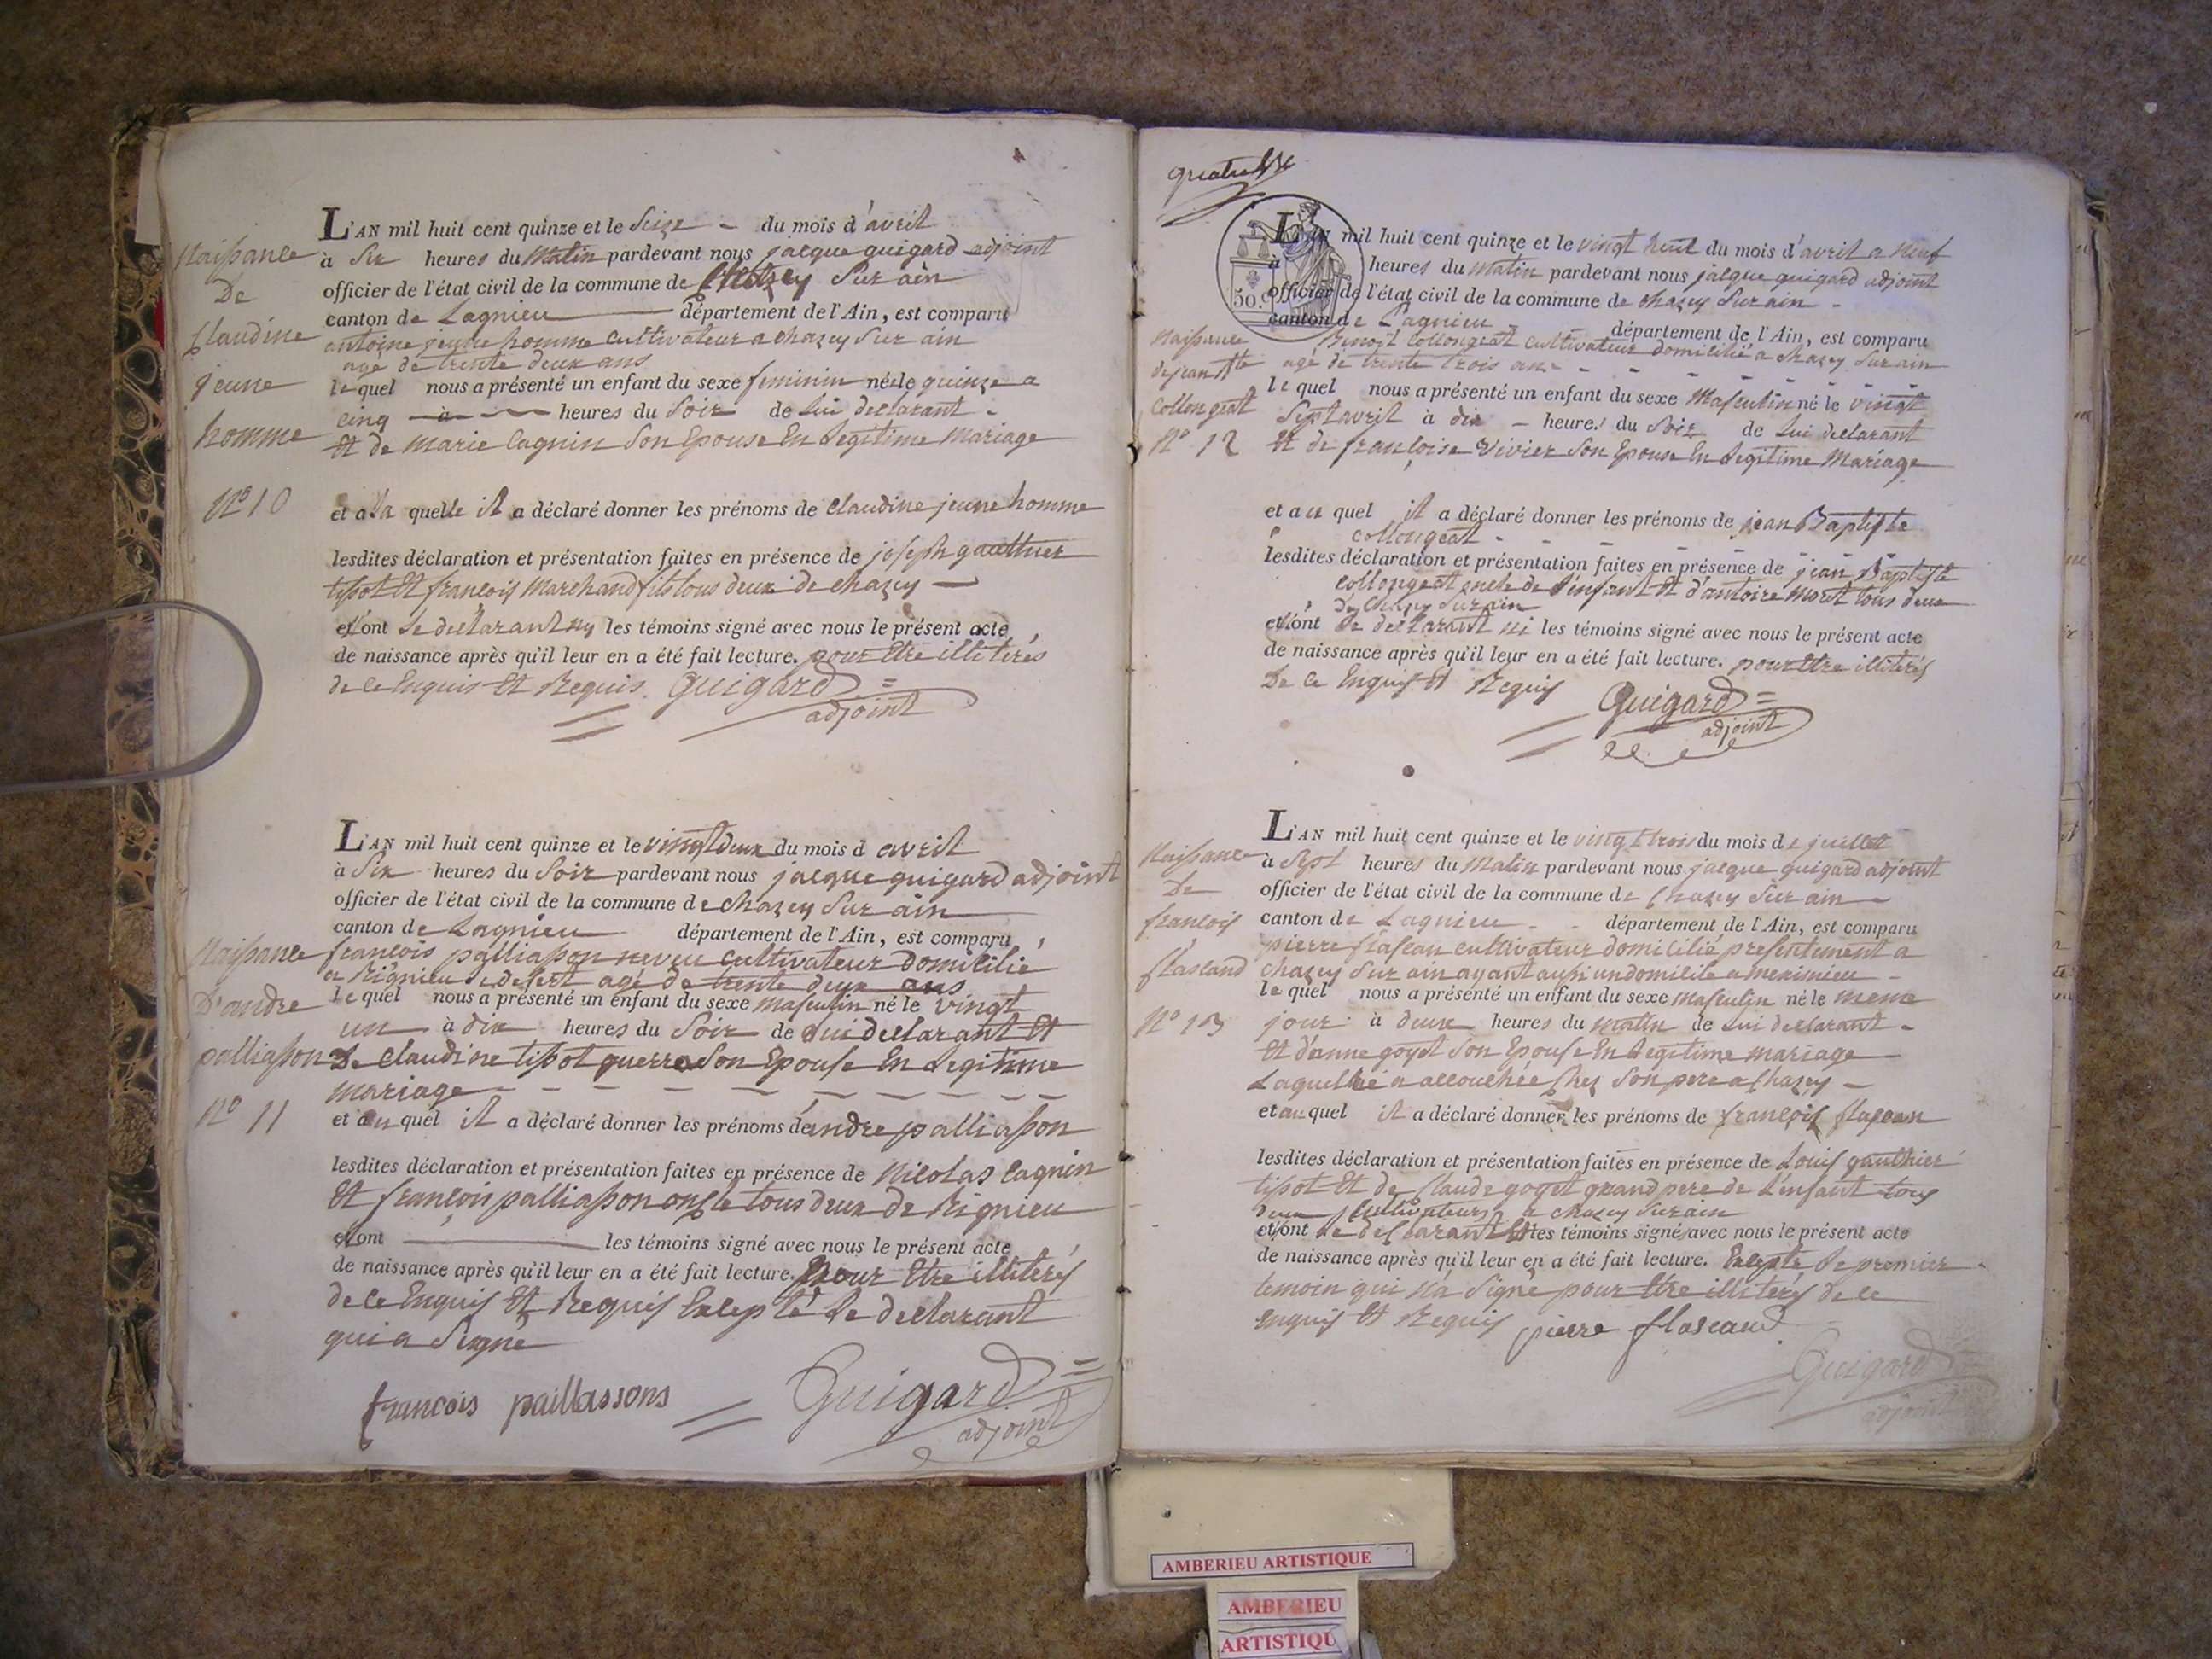 Naissance
De
Claudine
jeune
homme
N° 10
L'AN mil huit cent quinze et le Seize - du mois d'avril
à Six heures du Matin pardevant nous jacque guigard adjoint
officier de l'état civil de la commune de Chazey Sur ain
canton de Lagnieu département de l'Ain, est comparu
antoine jeune homme cultivateur a chazey Sur ain
agé de trente deux ans
le quel nous a présenté un enfant du sexe feminin née le quinze a
cinq à heures du Soir de Lui declarant -
Et de marie Cagnin Son Epouse En Legitime Mariage
et a la quelle il a déclaré donner les prénoms de Claudine jeune homme
lesdites déclaration et présentation faites en présence de joseph gauthier
tissot Et françois Marchand fils tous deux de chazey
et n'ont Le declarant ny les témoins signé avec nous le présent acte
de naissance après qu'il leur en a été fait lecture. pour Etre illiterés
de ce Enquis Et Requis. Guigard
adjoint
Naissance
D'andre
palliasson
N° 11
L'AN mil huit cent quinze et le vingt deux du mois d avril
à Six heures du Soir pardevant nous jacque guigard adjoint
officier de l'état civil de la commune de chazey Sur ain
canton de Lagnieu département de l'Ain, est comparu
françois palliasson neveu cultivateur Domicilié
a Rignieu le desert agé de trente deux ans
le quel nous a présenté un enfant du sexe masculin né le vingt
un à dix heures du Soir de Lui declarant Et
De Claudine tissot guerre Son Epouse En Legitime
mariage
et au quel il a déclaré donner les prénoms de andre palliasson
lesdites déclaration et présentation faites en présence de Nicolas Cagnin
Et françois palliasson oncle tous deux de Rignieu
et n'ont les témoins signé avec nous le présent acte
de naissance après qu'il leur en a été fait lecture. pour Etre illiterés
de ce Enquis Et Requis Excepté Le declarant
qui a Signé
francois paillassons Guigard
adjoint
quatre
50.
Naissance
de jean Bte
Collongeat
N° 12
L'AN mil huit cent quinze et le vingt huit du mois d'avril a Neuf
a heures du matin pardevant nous jacque guigard adjoint
officier de l'état civil de la commune de chazey Sur ain -
canton de Lagnieu - département de l'Ain, est comparu
Benoit Collongeat cultivateur domicilié a chazey Sur ain
agé de trente trois ans
le quel nous a présenté un enfant du sexe Masculin né le vingt
Sept avril à dix - heures du Soir de Lui declarant
Et de françoise Vivier Son Epouse En Legitime Mariage
et au quel il a déclaré donner les prénoms de jean Baptiste
Collongeat
lesdites déclaration et présentation faites en présence de jean Baptiste
Collongeat oncle de L'enfant Et d'antoine Moret tous deux
de Chazey Sur ain
et n'ont Le declarant ni les témoins signé avec nous le présent acte
de naissance après qu'il leur en a été fait lecture. pour Etre illiterés
De Ce Enquis Et Requis Guigard
adjoint
Naissance
De
françois
flascand
N° 13
L'AN mil huit cent quinze et le vingt trois du mois de juillet
à Sept heures du Matin pardevant nous jacque guigard adjoint
officier de l'état civil de la commune de Chazey Sur ain -
canton de Lagnieu - - département de l'Ain, est comparu
pierre flascau cultivateur domicilié presentement a
Chazey Sur ain ayant aussi un domicile a meximieu -
le quel nous a présenté un enfant du sexe Masculin né le meme
jour à deux heures du matin de Lui declarant -
Et d'anne goyet Son Epouse En Legitime mariage
Laquelle a accouchée Chez Son pere a Chazey -
et au quel il a déclaré donner les prénoms de françois flascau
lesdites déclaration et présentation faites en présence de Louis gauthier
tissot Et de Claude goyet grand pere de L'enfant tous
deux Cultivateurs a chazey Sur ain
et n'ont Le declarant Et les témoins signé avec nous le présent acte
de naissance après qu'il leur en a été fait lecture. Excepté Le premier
temoin qui n'a Signé pour Etre illiterés de ce
Enquis Et Requis pierre flascaud
Guigard
adjoint
AMBERIEU ARTISTIQUE
AMBERIEU
ARTISTIQU